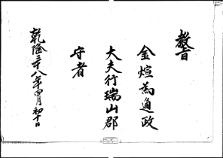 教旨
金煊為通政
大夫行瑞山郡
守者
乾隆三十八年四月初十日